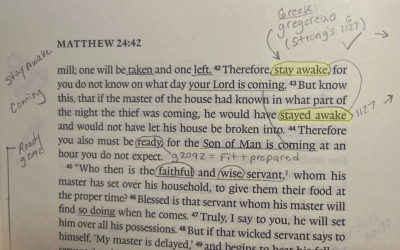 Greek:
gregoreuo
(Strong's G
1127)
MATTHEW 24:42
Stay Awake
Coming
Ready
mill; one will be taken and one left. 42 Therefore, stay awake, for
you do not know on what day your Lord is coming. 43 But know
this, that if the master of the house had known in what part of
the night the thief was coming, he would have stayed awake
1127
and would not have let his house be broken into. 44 Therefore
you also must be ready, for the Son of Man is coming at an
hour you do not expect. g2092 = Fit + prepared
45 "Who then is the faithful and wise servant, whom his
master has set over his household, to give them their food at
the proper time? 46 Blessed is that servant whom his master will
find so doing when he comes. 47 Truly, I say to you, he will set
him over all his possessions. 48 But if that wicked servant says to
himself, 'My master is delayed,' 49 and begins to beat his